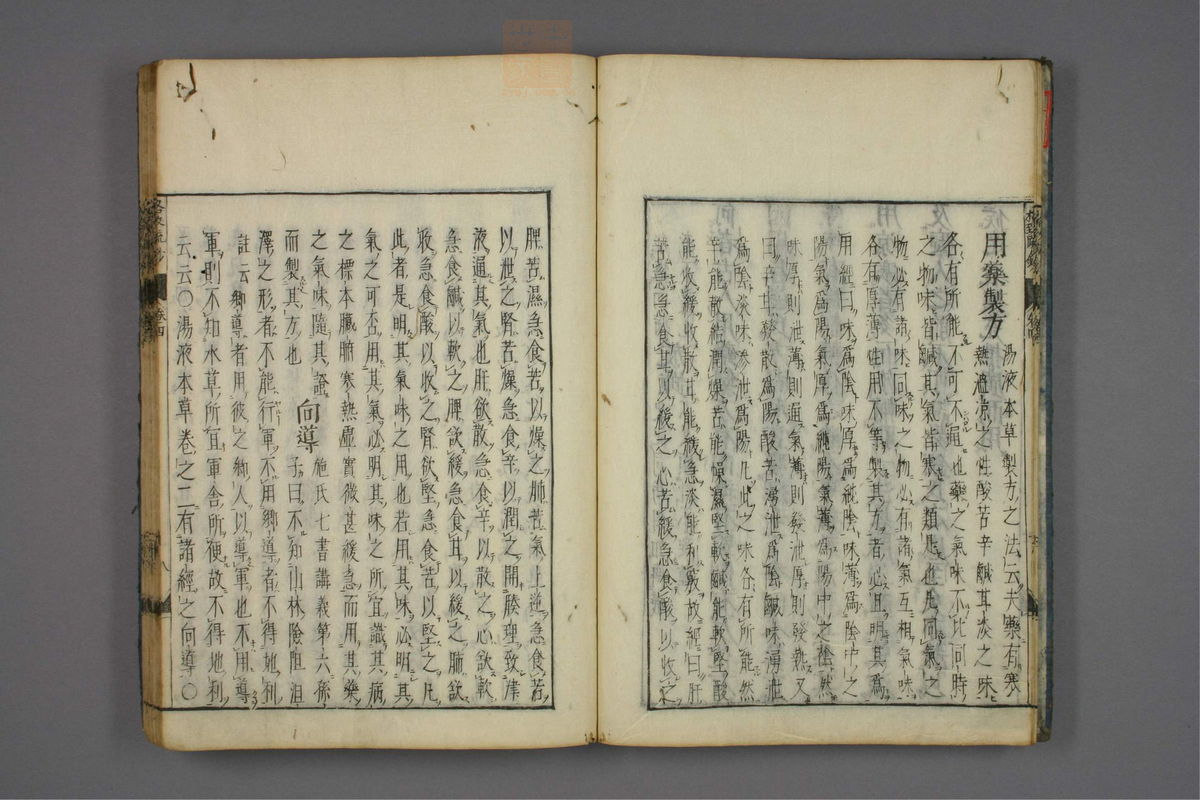 用藥製方 湯液本草製方之法云夫藥有寒
熱溫涼之性酸苦辛鹹甘淡之味
各有所能不可不通也藥之氣味不比同時
之物味皆鹹其氣皆寒之類是也凡同氣之
物必有諸味同味之物必有諸氣互相氣味
各有厚薄性用不等製其方者必且明其爲
用經曰味爲陰味厚爲純陰味薄爲陰中之
陽氣爲陽氣厚爲純陽氣薄爲陽中之陰然
味厚則泄薄則通氣薄則發泄厚則發熱又
曰辛甘發散爲陽酸苦湧泄爲陰鹹味湧泄
爲陰淡味滲泄爲陽凡此之味各有所能然
辛能散結潤燥苦能燥濕堅軟鹹能軟堅酸
能收緩收散甘能緩急淡能利竅故經曰肝
苦急急食甘以緩之心苦緩急食酸以收之
脾苦濕急食苦以燥之肺苦氣上逆急食苦
以泄之腎苦燥急食辛以潤之開腠理致津
液通其氣也肝欲散急食辛以散之心欲軟
急食鹹以軟之脾欲緩急食甘以緩之肺欲
收急食酸以收之腎欲堅急食苦以堅之凡
此者是明其氣味之用也若用其味必明其
氣之可否用其氣必明其味之所宜識其病
之標本臟腑寒熱虛實微甚緩急而用其藥
之氣味隨其證
而製其方也 向導 施氏七書講義第六孫
子曰不知山林險阻沮
澤之形者不能行軍不用鄉導者不得地利
註云鄉導者用彼之鄉人以導軍也不用導
軍則不知水草所宜軍舍所便故不得地利
云云〇湯液本草卷之二有諸經之向導〇